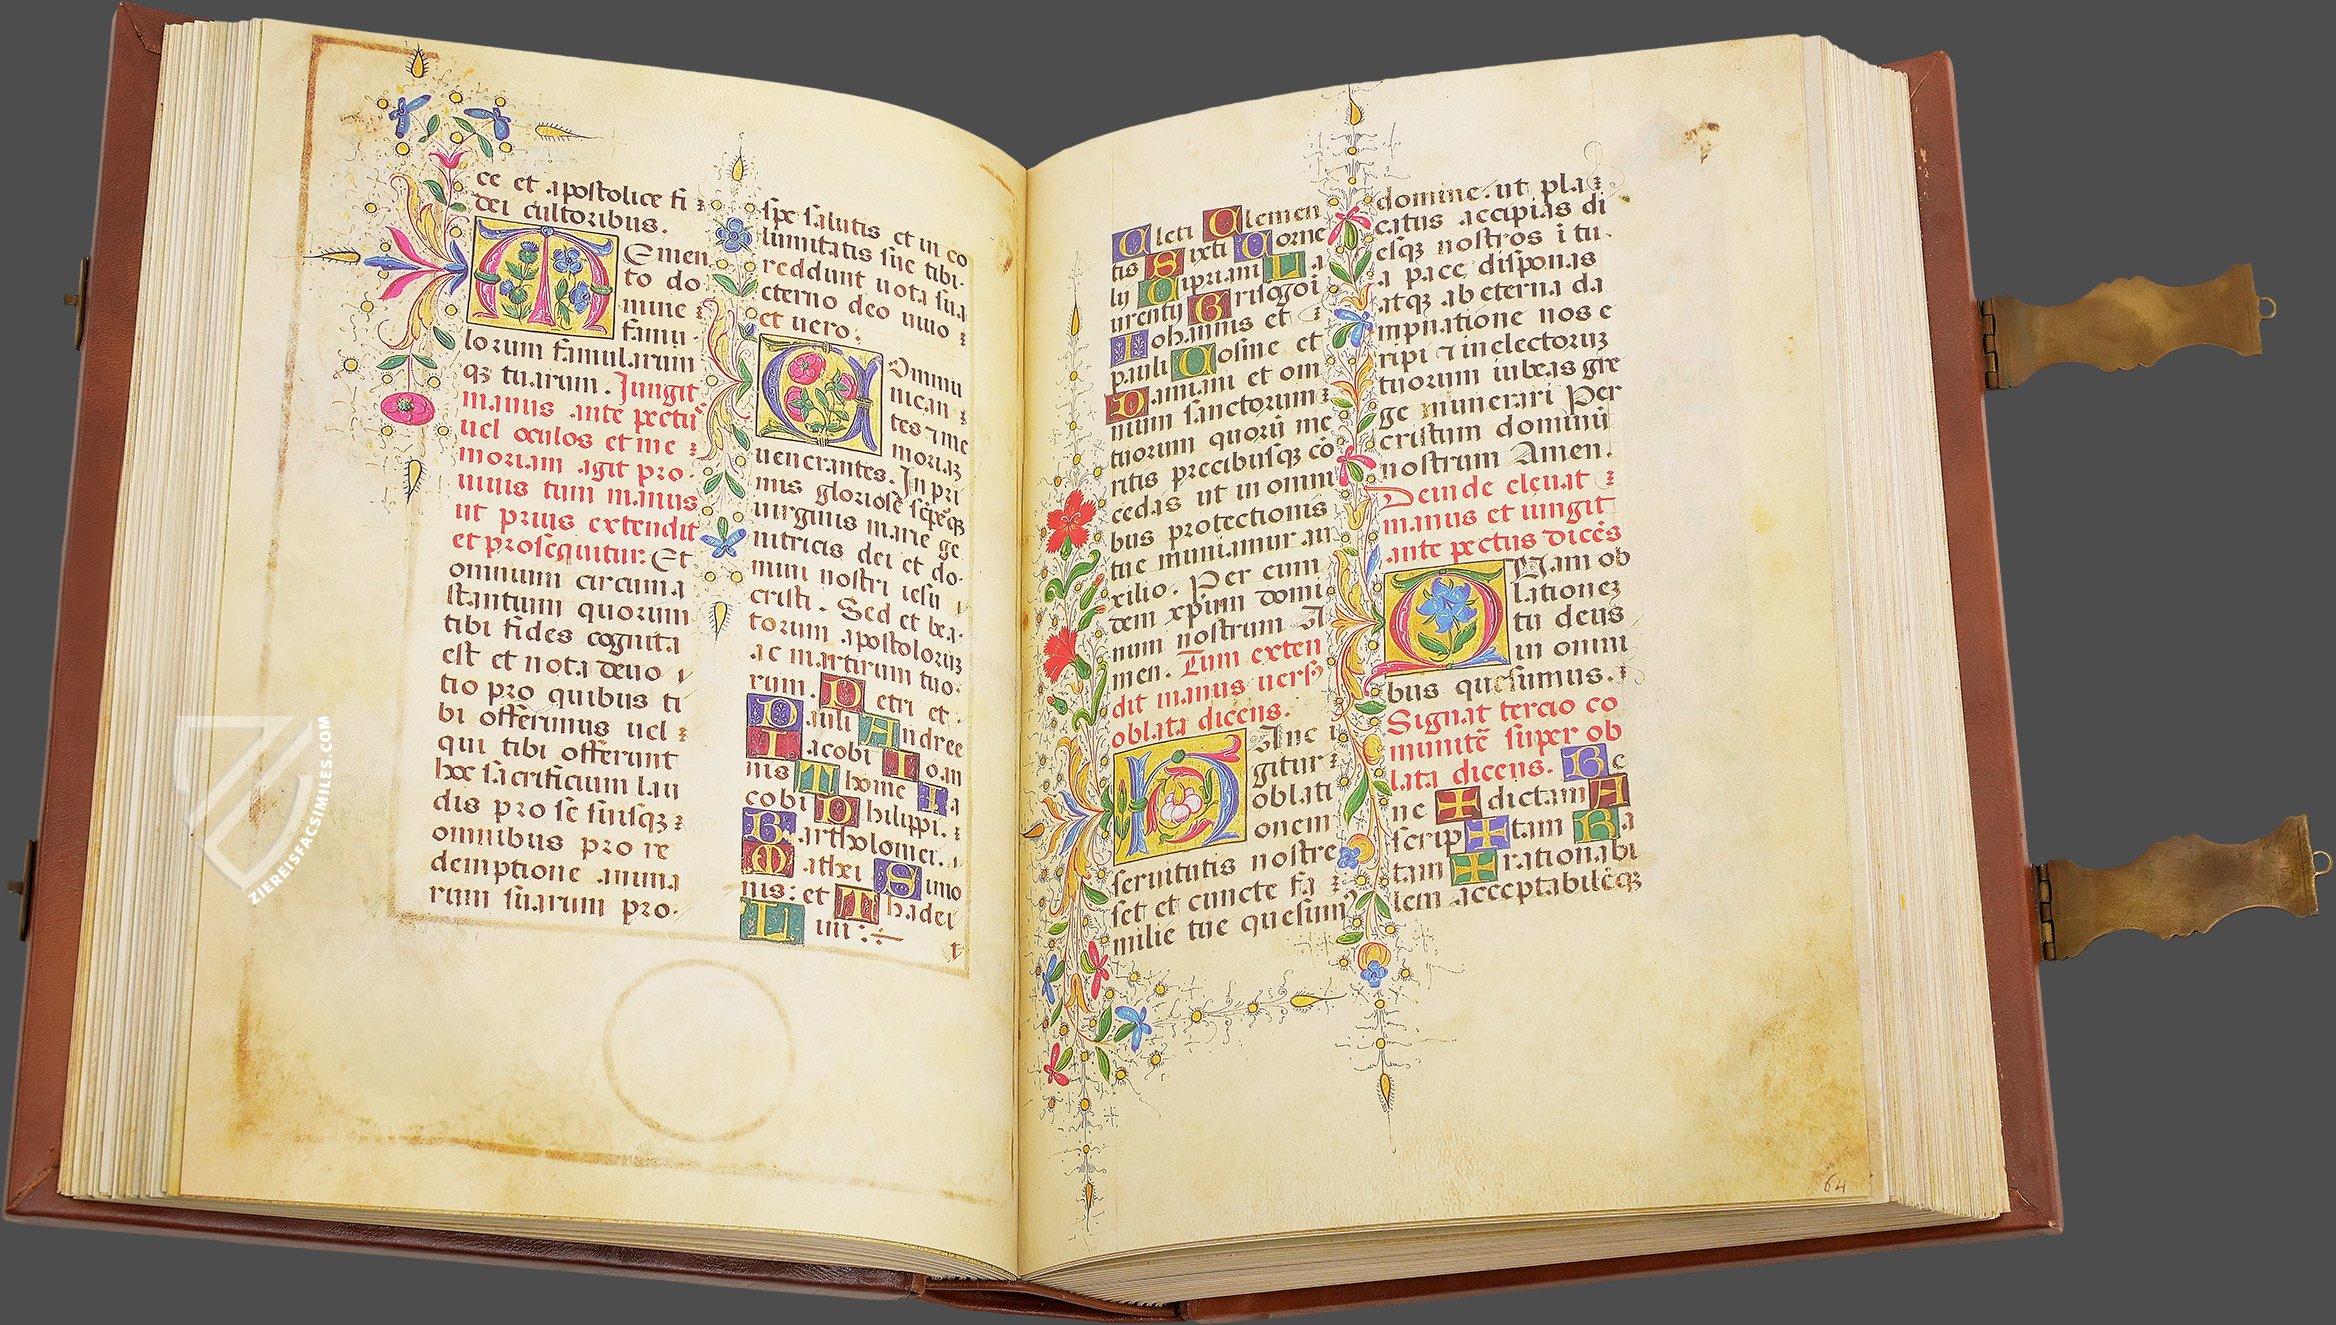 ce et apostolice fi
dei cultoribus.
Memen
to do
mine
famu
lorum famularum
qꝫ tuarum. Jungit
manus ante pectus
uel oculos et me
moriam agit pro
uiuis tum manus
ut prius extendit
et prosequitur: Et
omnium circuma
stantium quorum
tibi fides cognita
est et nota deuo
tio pro quibus ti
bi offerimus uel
qui tibi offerunt
hoc sacrificium lau
dis pro se suisqꝫ
omnibus pro re
demptione anima
rum suarum pro
spe salutis et in co
lumitatis sue tibi
reddunt uota sua
eterno deo uiuo
et uero.
Commu
nican
tes ⁊ me
moriaꝫ
uenerantes. In pri
mis gloriose sēpeqꝫ
uirginis marie ge
nitricis dei et do
mini nostri iesu
cristi. Sed et bea
torum apostoloruꝫ
ac martirum tuo
rum. Petri et
Pauli Andree
Iacobi Ioan
nis Thome Ia
cobi Philippi.
Bartholomei.
Mathei Simo
nis: et Thadei
Lini
t
Cleti Clemen
tis Sixti Corne
lij Cipriani La
urentij Grisogoi
Iohannis et
pauli Cosme et
Damiani et om
nium sanctorum
tuorum quorū me
ritis precibusqꝫ cō
cedas ut in omni
bus protectionis
tue muniamur au
xilio. Per eum
dem xp̄um domi
num nostrum A
men. Tum exten
dit manus uersꝰ
oblata dicens.
Hanc i
gitur
oblati
onem
seruitutis nostre
set et cuncte fa
milie tue quesumꝰ
domine. ut pla
catus accipias di
esqꝫ nostros ī tu
a pace disponas
atqꝫ ab eterna da
mpnatione nos e
ripi ⁊ in electoruꝫ
tuorum iubeas gre
ge munerari Per
cristum dominū
nostrum Amen.
Deinde eleuat
manus et iungit
ante pectus dicēs
Quam ob
lationeꝫ
tu deus
in omni
bus quesumus.
Signat tercio co
munitē super ob
lata dicens. Be
ne ✠ dictam A
scrip ✠ tam Ra
tam ✠ rationabi
lem acceptabilēqꝫ
64
ZIEREISFACSIMILES.COM